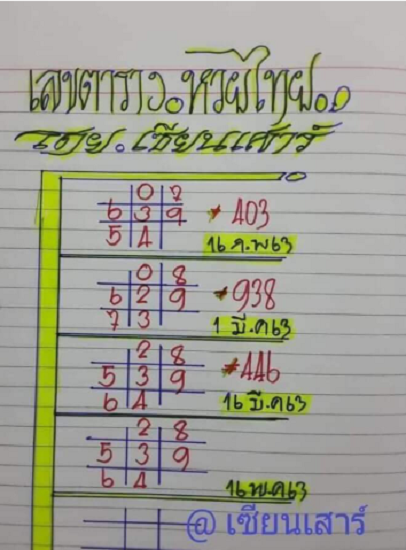 เลขตาราง.หวยไทย..
โดย.เซียนเสาร์
0 7
6 3 9 * 403
5 4
16 ก.พ 63
0 8
6 2 9 * 938
7 3
1 มี.ค 63
2 8
5 3 9 * 446
6 4
16 มี.ค 63
2 8
5 3 9
6 4
16 พ.ค 63
@ เซียนเสาร์